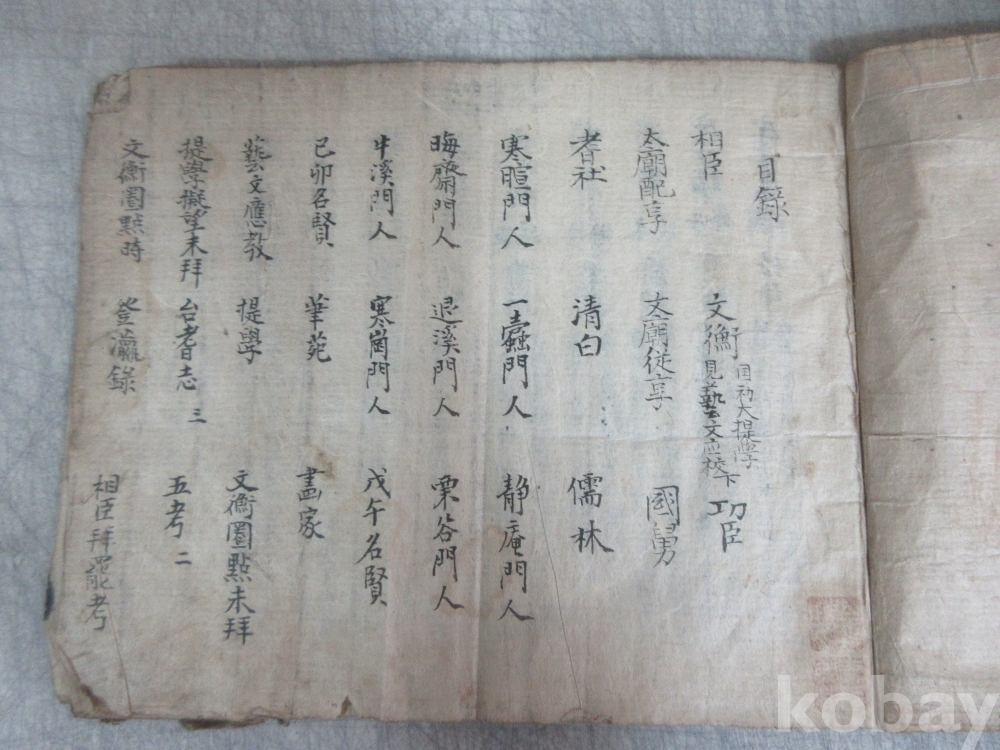 目錄
相臣 文衡 国初大提學見藝文应校下 功臣
太廟配享 文廟從享 國舅
耆社 清白 儒林
寒暄門人 一蠹門人 静庵門人
晦齋門人 退溪門人 栗谷門人
牛溪門人 寒岡門人 戊午名賢
己卯名賢 華苑 畵家
藝文應教 提學 文衡圈點未拜
提學擬望未拜 台耆志 三 五考 二
文衡圈點時 登瀛錄 相臣拜罷考
kobay